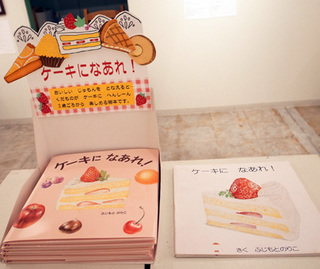 ケーキになあれ！
おいしい じゅもんを となえると
くだものが ケーキに へんしーん
1歳ごろから 楽しめる絵本です。
ケーキに なあれ！
ふじもと のりこ
ケーキに なあれ！
さく ふじもとのりこ